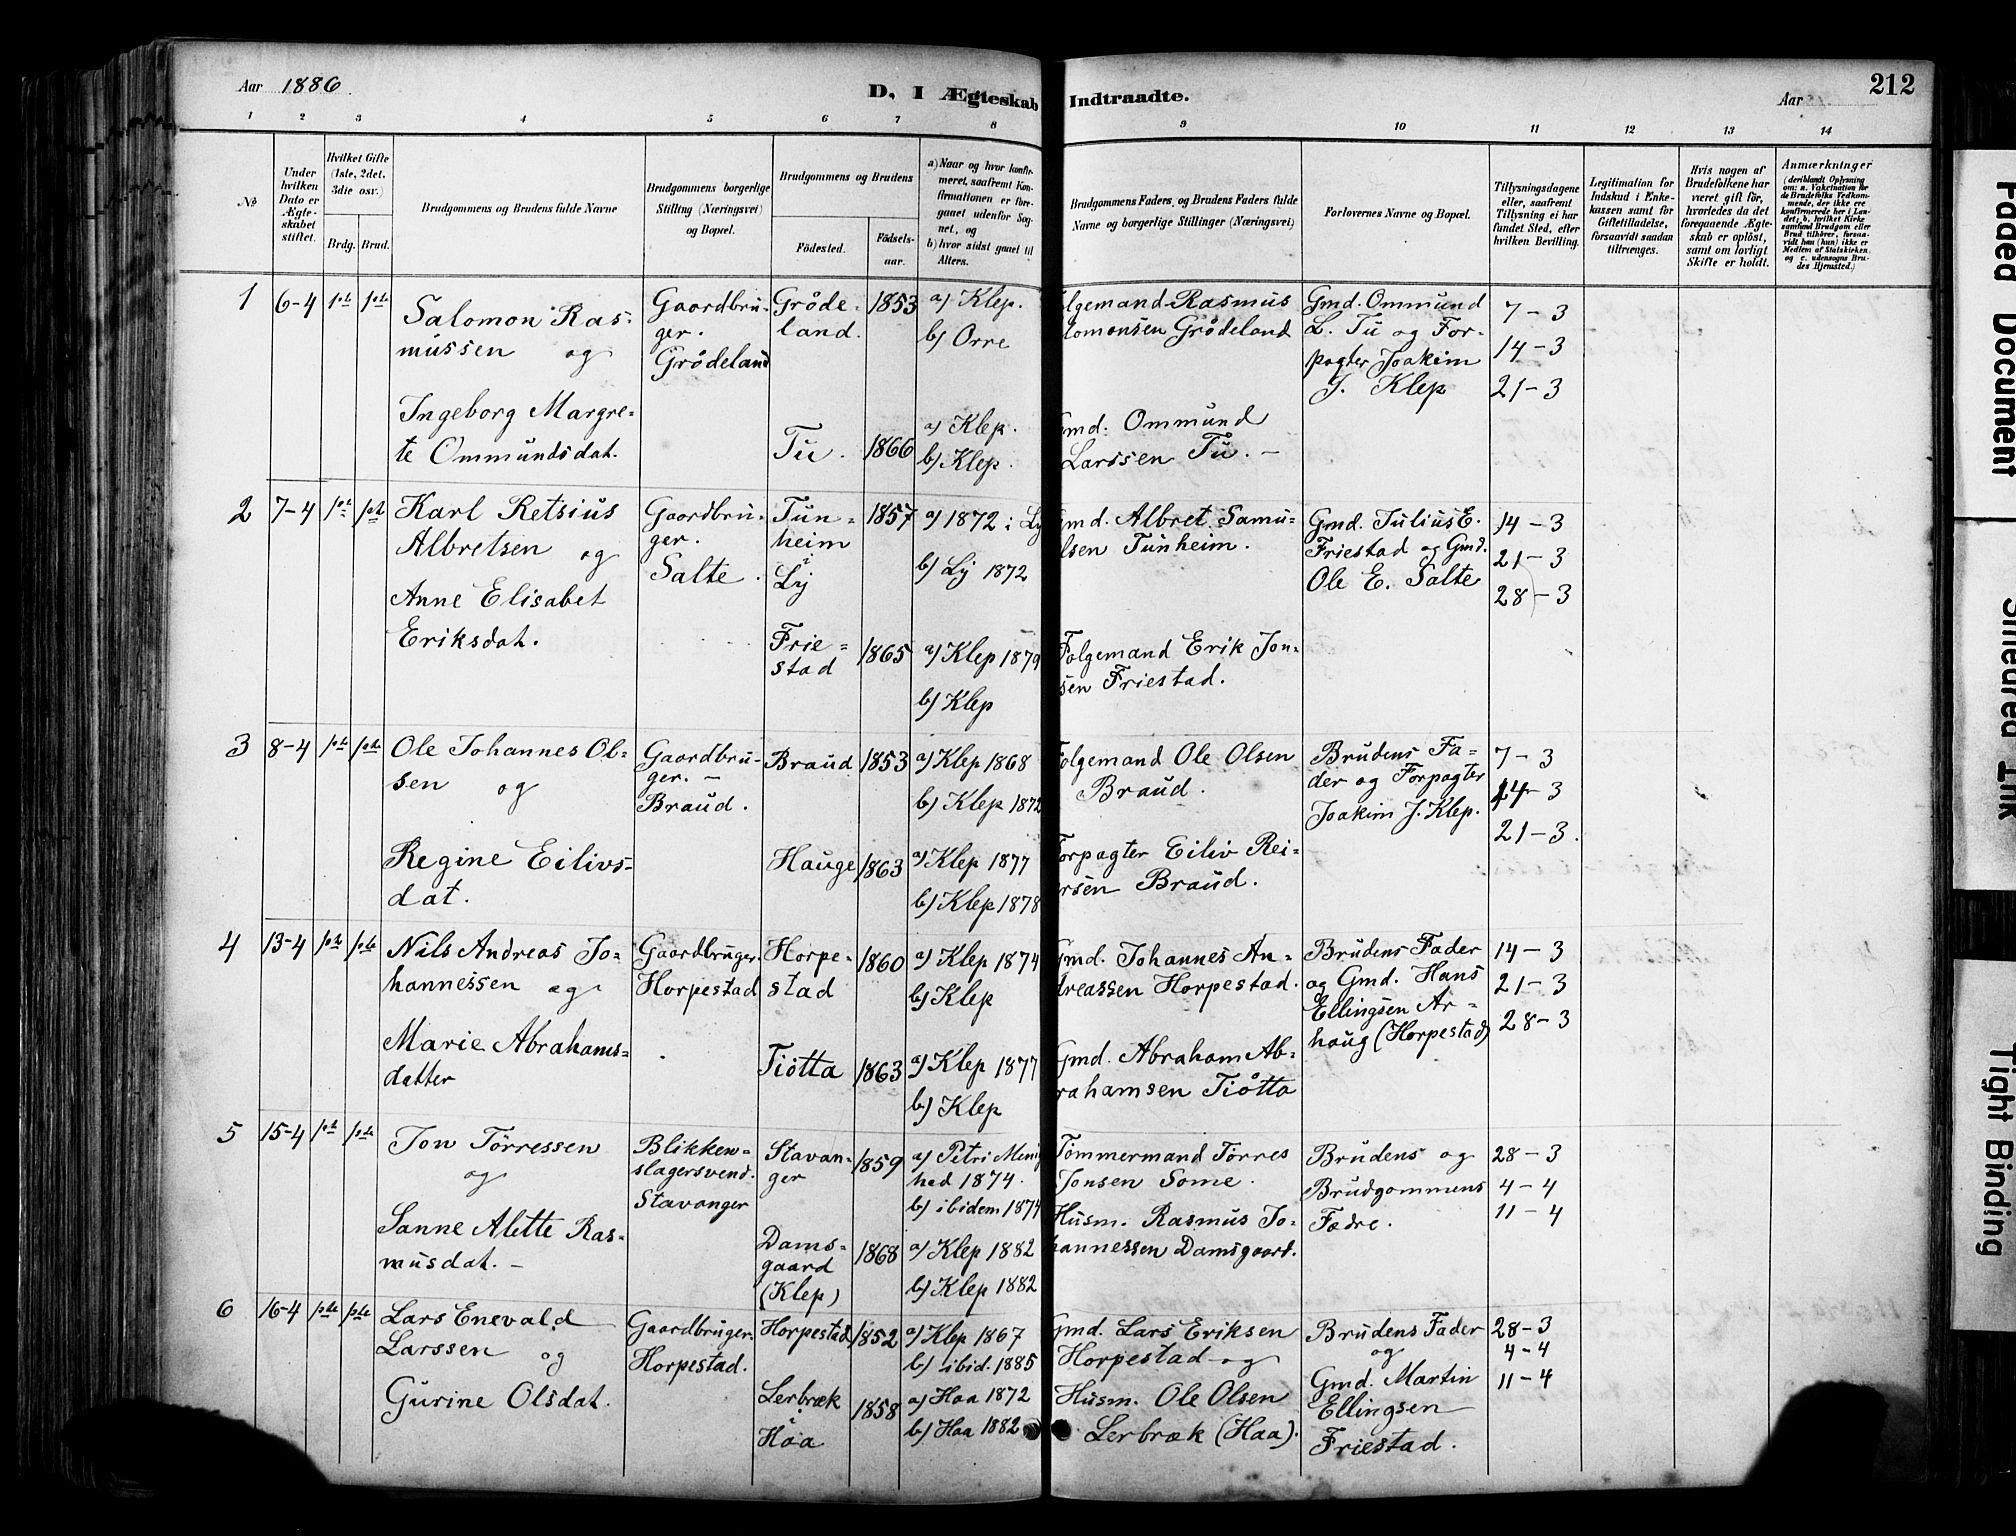 Aar 1886.
D, I Ægteskab Indtraadte.
Aar
212
1 2 3 4 5 6 7 8 9 10 11 12 13 14
No
Under hvilken Dato er Ægteskabet stiftet.
Hvilket Gifte (1ste, 2det, 3die osv.)
Brdg. Brud.
Brudgommens og Brudens fulde Navne
Brudgommens borgerlige Stilling (Næringsvei) og Bopæl.
Brudgommens og Brudens
Fødested. Fødselsaar.
a) Naar og hvor konfirmeret, saafremt Konfirmationen er foregaaet udenfor Sognet, og
b) hvor sidst gaaet til Alters.
Brudgommens Faders, og Brudens Faders fulde Navne og borgerlige Stillinger (Næringsvei)
Forlovernes Navne og Bopæl.
Tillysningsdagene eller, saafremt Tillysning ei har fundet Sted, efter hvilken Bevilling.
Legitimation for Indskud i Enkekassen samt for Giftetilladelse, forsaavidt saadan tiltrænges.
Hvis nogen af Brudefolkene har været gift før, hvorledes da det foregaaende Ægteskab er opløst, samt om lovligt Skifte er holdt.
Anmærkninger (deriblandt Oplysning om: a. Vakcination for de Brudefolks Vedkommende, der ikke ere konfirmerede her i Landet; b. hvilket Kirkesamfund Brudgom eller Brud tilhører, forsaavidt han (hun) ikke er Medlem af Statskirken, og c. udensogns Brudes Hjemsted.)
1 6-4 1ste 1ste
Salomon Rasmussen og
Ingeborg Margrete Ommundsdat.
Gaardbruger. Grødeland
Grødeland. 1853
a) Klep.
b) Orre
Tu. 1866
a) Klep.
b) Klep.
olgemand Rasmus
lomonsen Grødeland
Gmd. Ommund
Larssen Tu. -
Gmd. Ommund
L. Tu og Forpagter Joakim
J. Klep
7-3
14-3
21-3
2 7-4 1ste 1ste
Karl Retsius
Albretsen og
Anne Elisabet
Eriksdat.
Gaardbruger.
Salte.
Tunheim i Ly 1857
a) 1872 i Ly
b) Ly 1872
Friestad 1865
a) Klep 1879
b) Klep
Gmd. Albret Samuelsen Tunheim.
Folgemand Erik Jonsen Friestad.
Gmd. Julius E.
Friestad og Gmd.
Ole E. Salte
14-3
21-3
28-3
3 8-4 1ste 1ste
Ole Johannes Olsen og
Regine Eilivsdat.
Gaardbruger. -
Braud.
Braud 1853
a) Klep 1868
b) Klep 1872
Hauge 1863
a) Klep 1877
b) Klep 1878
Folgemand Ole Olsen
Braud.
Forpagter Eiliv Reiersen Braud.
Brudens Fader og Forpagter
Joakim J. Klep.
7-3
14-3
21-3.
4 13-4 1ste 1ste
Nils Andreas Johannessen og
Marie Abrahamsdatter
Gaardbruger.
Horpestad
Horpestad 1860
a) Klep 1874
b) Klep
Tiøtta 1863
a) Klep 1877
b) Klep
Gmd. Johannes Andreassen Horpestad.
Gmd. Abraham Abrahamsen Tiøtta
Brudens Fader
og Gmd. Hans
Ellingsen Arhaug (Horpestad)
14-3
21-3
28-3
5 15-4 1ste 1ste
Jon Tørressen
og
Sanne Alette Rasmusdat. -
Blikkenslagersvend.
Stavanger
Stavanger 1859
a) Petri Menighed 1874.
b) ibidem 1874
Damsgaard (Klep) 1868
a) Klep 1882
b) Klep 1882
Tømmermand Tørres
Jonsen Some.
Husm. Rasmus Johannessen Damsgaard.
Brudens og
Brudgommens
Fædre.
28-3
4-4
11-4
6 16-4 1ste 1ste
Lars Enevald
Larssen og
Gurine Olsdat.
Gaardbruger.
Horpestad.
Horpestad 1852
a) Klep 1867
b) ibid. 1885
Lerbræk i Haa 1858
a) Haa 1872
b) Haa 1882
Gmd. Lars Eriksen
Horpestad og
Husm. Ole Olsen
Lerbræk (Haa).
Brudens Fader
og
Gmd. Martin
Ellingsen
Friestad.
28-3
4-4
11-4
Faded Document
Smeared Ink
Tight Binding